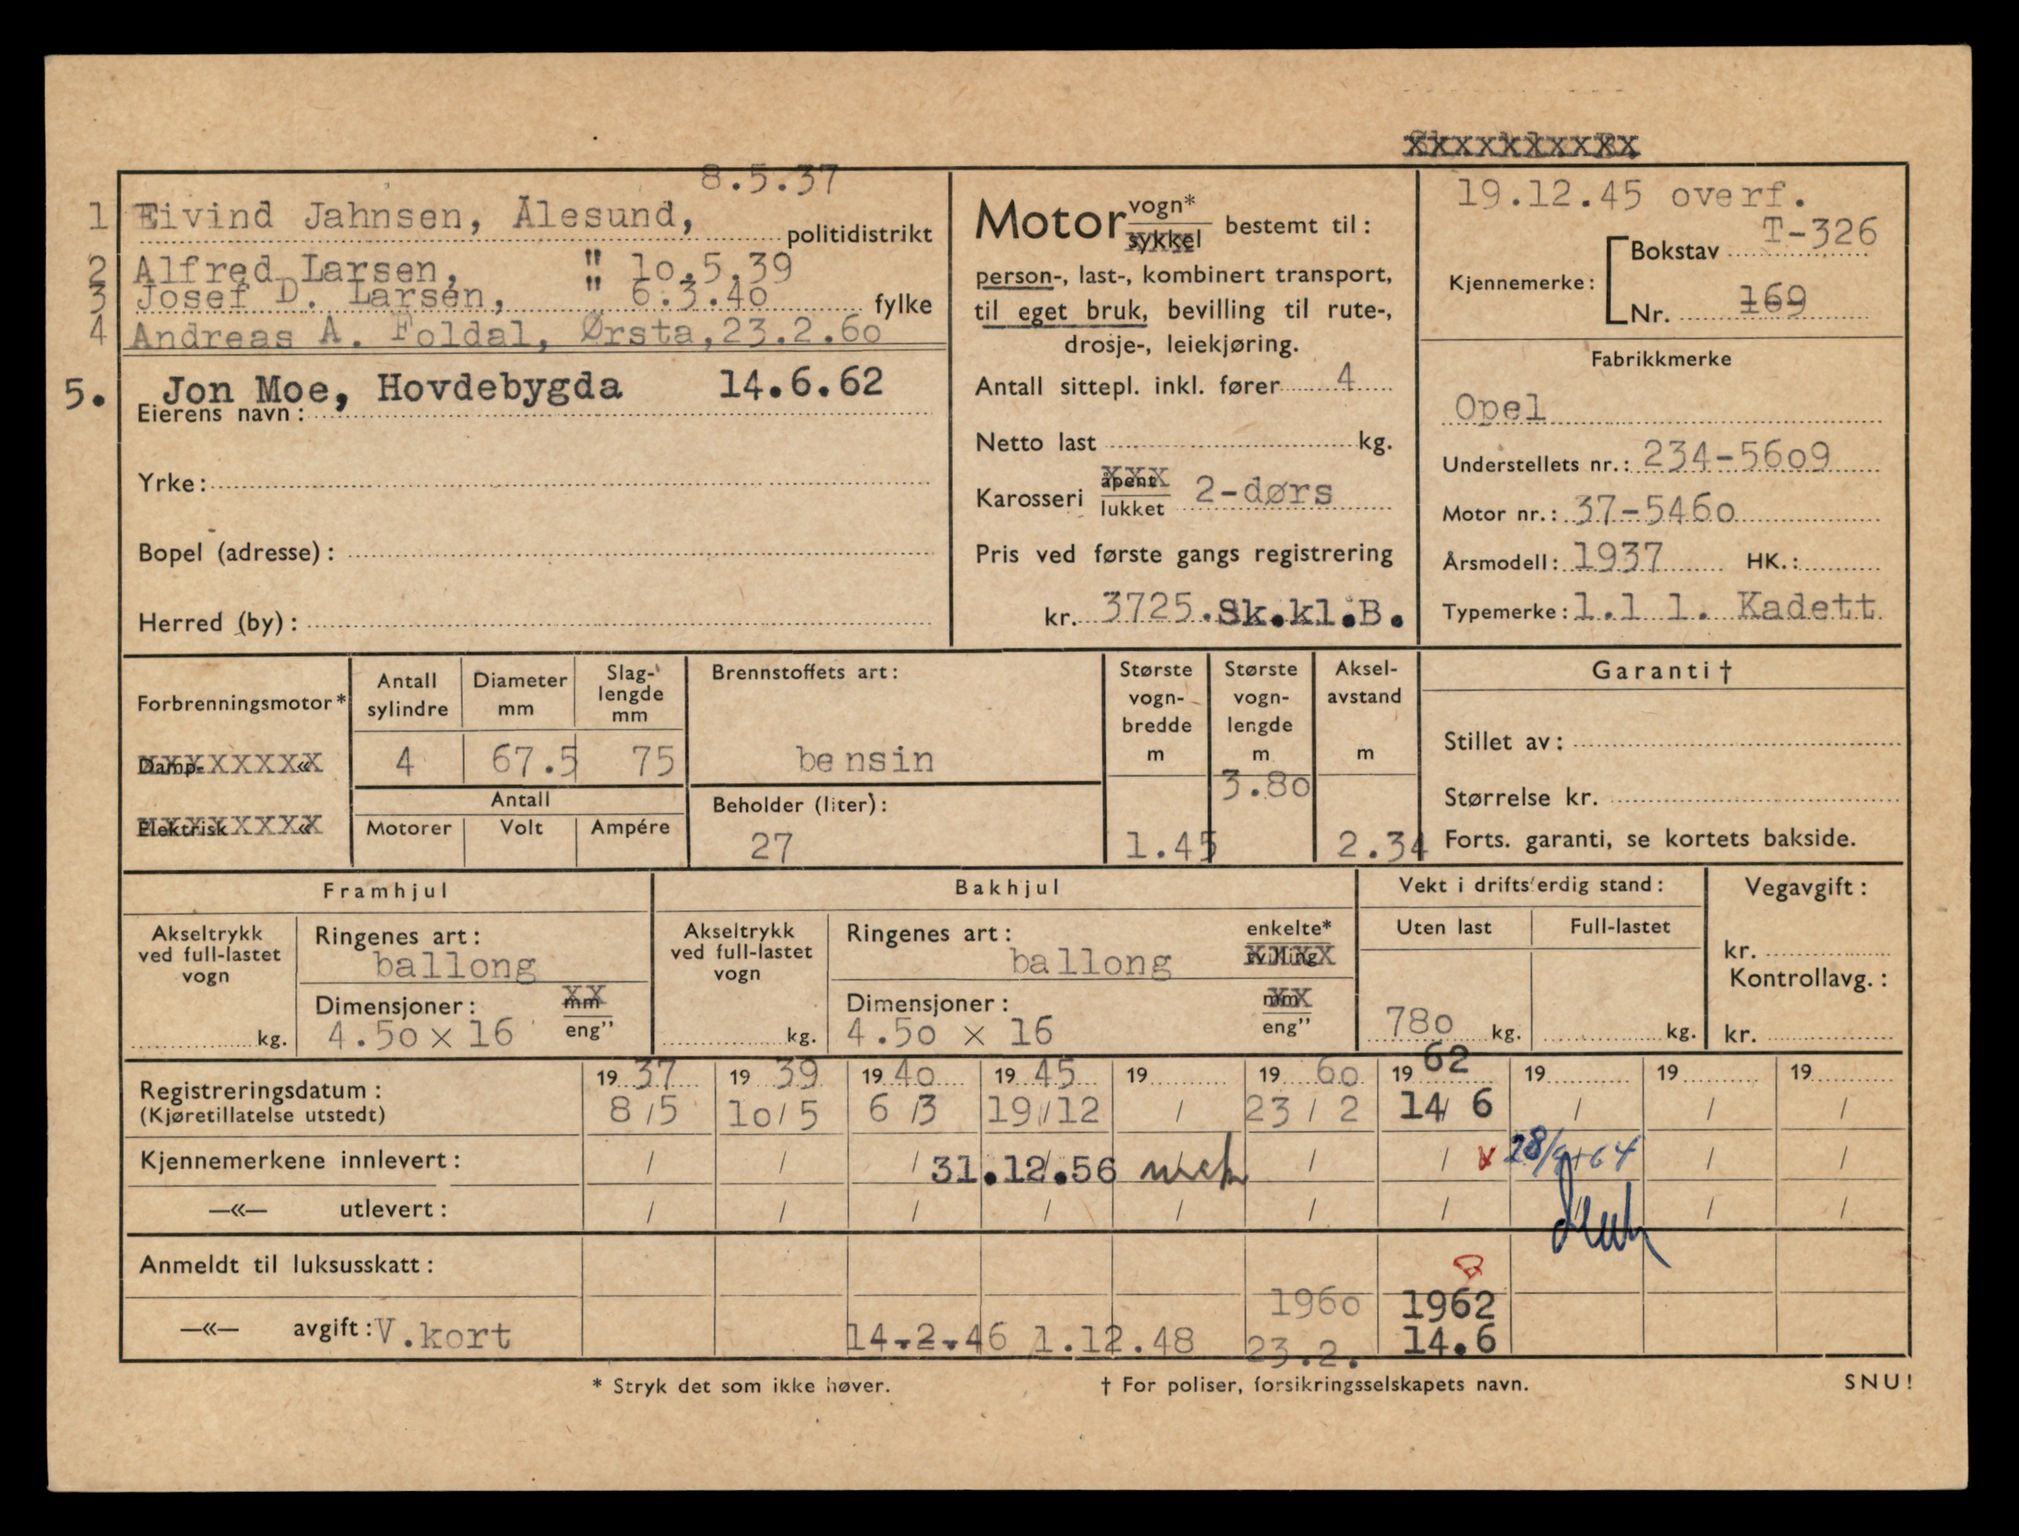 8.5.37
1 Eivind Jahnsen, Ålesund, politidistrikt
2 Alfred Larsen, " 10.5.39
3 Josef D. Larsen, " 6.3.40 fylke
4 Andreas A. Foldal, Ørsta, 23.2.60
5. Jon Moe, Hovdebygda 14.6.62
Eierens navn:
Yrke:
Bopel (adresse):
Herred (by):
Motor vogn* / sykkel bestemt til:
person-, last-, kombinert transport,
til eget bruk, bevilling til rute-,
drosje-, leiekjøring.
Antall sittepl. inkl. fører 4
Netto last kg.
Karosseri åpent / lukket 2-dørs
Pris ved første gangs registrering
kr. 3725. Sk.kl.B.
19.12.45 overf.
T-326
Kjennemerke: Bokstav
Nr. 169
Fabrikkmerke
Opel
Understellets nr.: 234-5609
Motor nr.: 37-5460
Årsmodell: 1937 HK.:
Typemerke: 1.1 l. Kadett
Forbrenningsmotor*
Damp- «
Elektrisk «
Antall sylindre
4
Diameter mm
67.5
Slag-lengde mm
75
Antall
Motorer Volt Ampére
Brennstoffets art:
bensin
Beholder (liter):
27
Største vogn-bredde m
1.45
Største vogn-lengde m
3.80
Aksel-avstand m
2.34
Garanti †
Stillet av:
Størrelse kr.
Forts. garanti, se kortets bakside.
Framhjul
Akseltrykk ved full-lastet vogn
kg.
Ringenes art:
ballong
Dimensjoner: mm / eng"
4.50 x 16
Bakhjul
Akseltrykk ved full-lastet vogn
kg.
Ringenes art: enkelte*
ballong tvilling
Dimensjoner: mm / eng"
4.50 x 16
Vekt i driftsferdig stand:
Uten last Full-lastet
780 kg. kg.
Vegavgift:
kr.
Kontrollavg.:
kr.
Registreringsdatum: 19 37 19 39 19 40 19 45 19 19 60 19 62 19 19 19
(Kjøretillatelse utstedt) 8/5 10/5 6/3 19/12 / 23/2 14/6 / / /
Kjennemerkene innlevert: / / / 31.12.56 / / x 28/ 64 / /
—«— utlevert: / / / / / / / / /
Anmeldt til luksusskatt:
1960 1962
—«— avgift: V.kort 14.2.46 1.12.48 23.2. 14.6
* Stryk det som ikke høver.
† For poliser, forsikringsselskapets navn.
SNU!